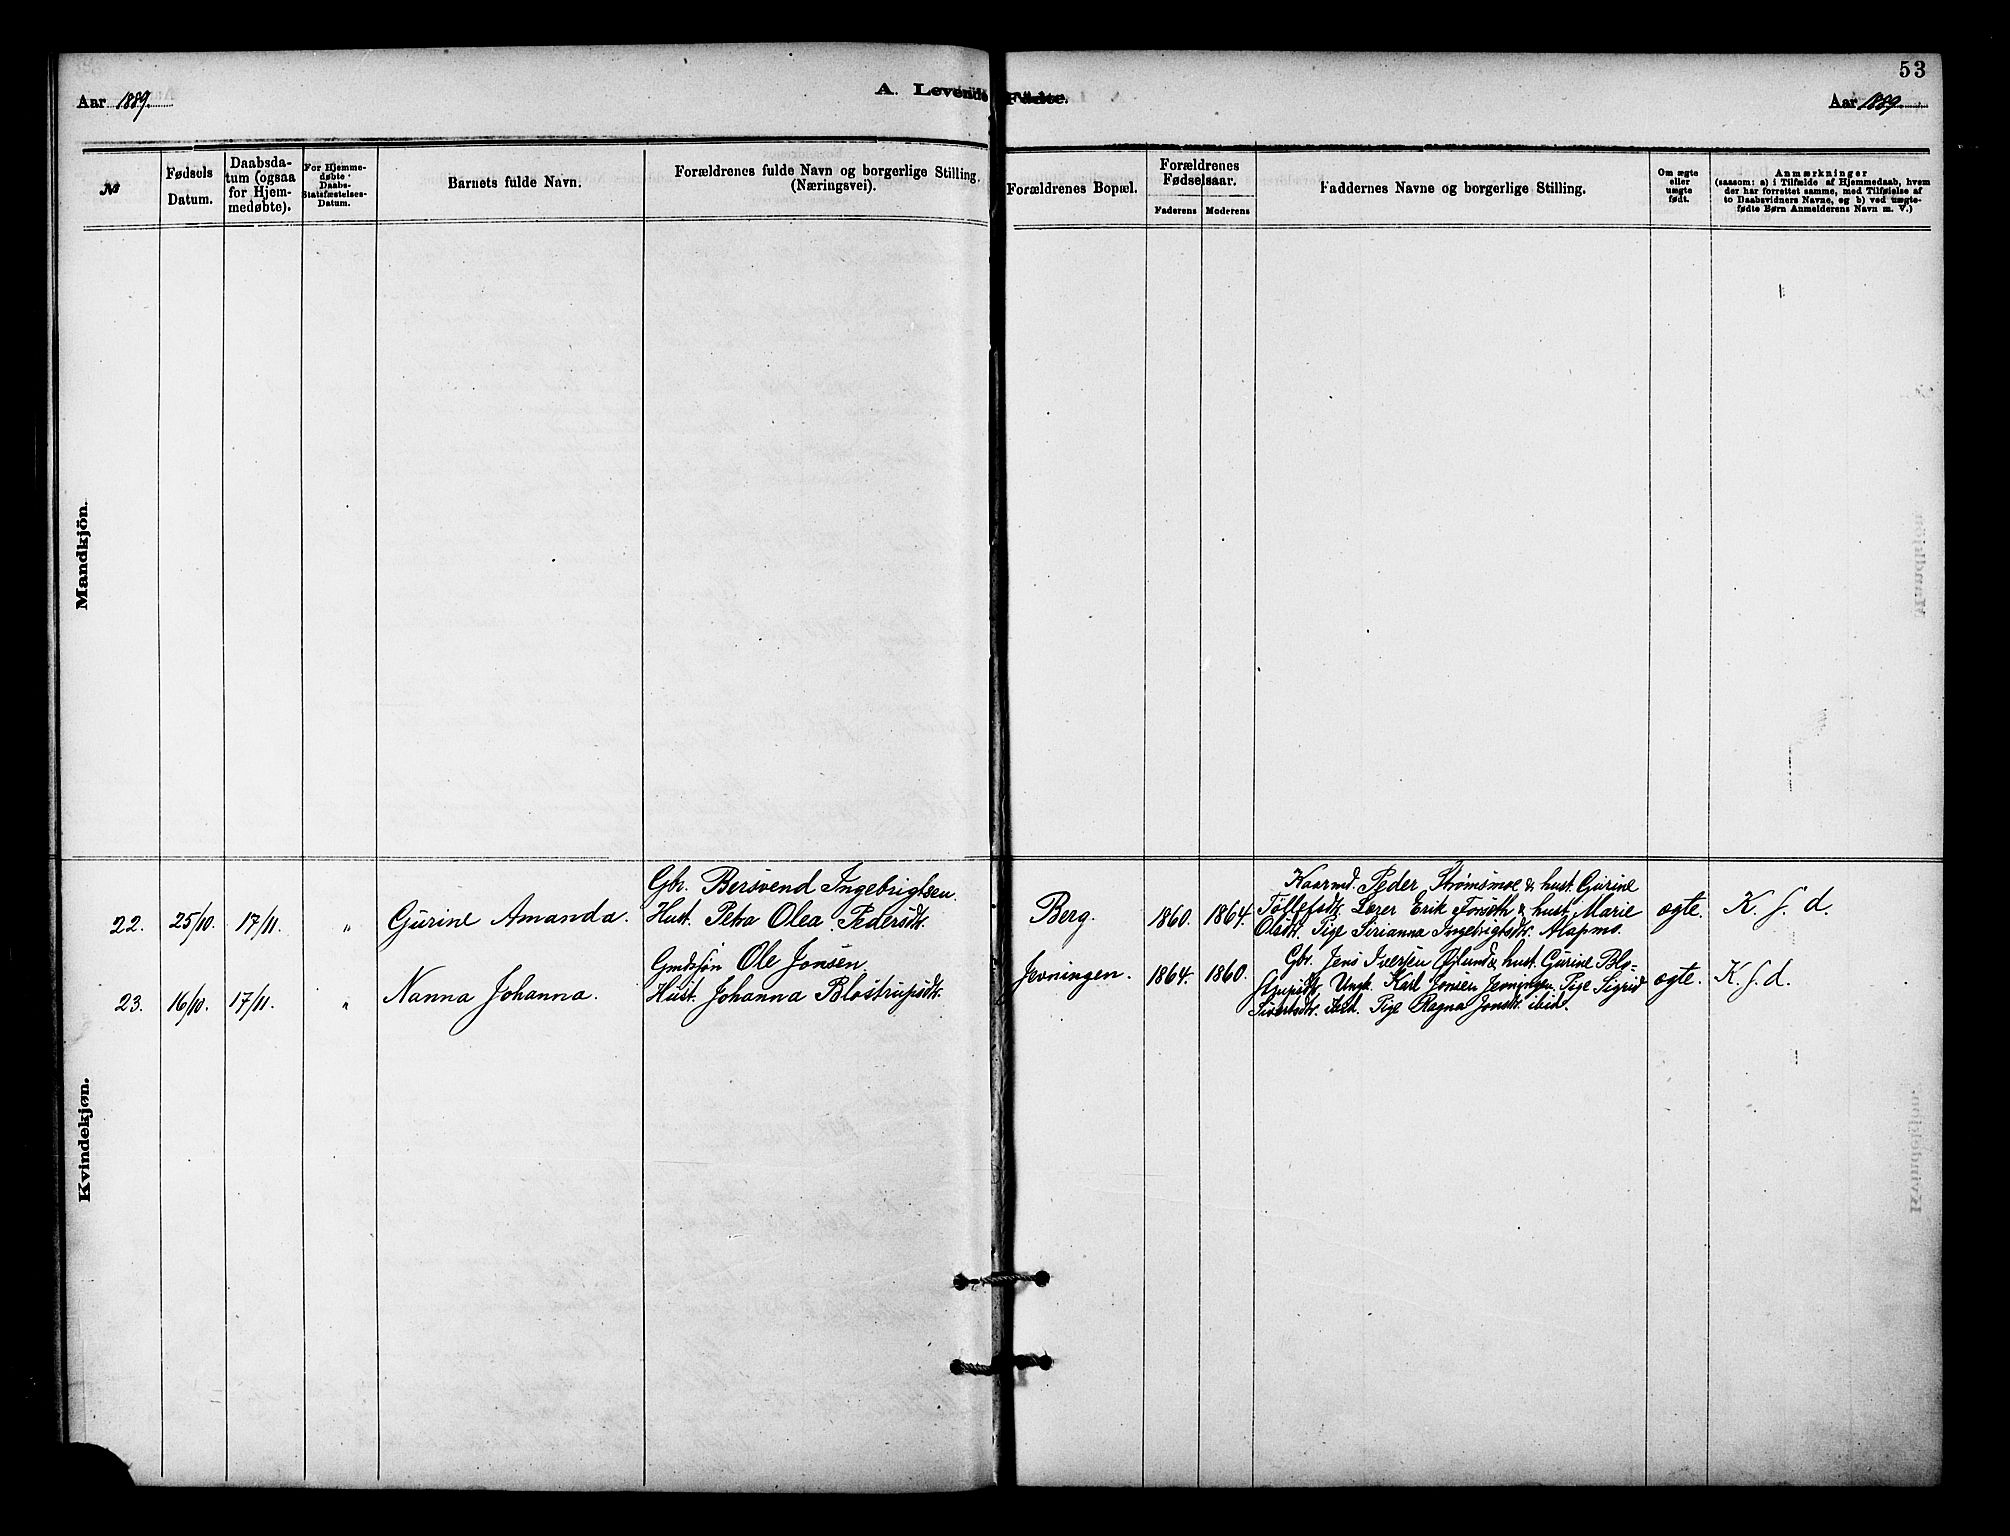 53
Aar 1889.
A. Levende Fødte.
Aar 1889.
№
Fødsels Datum.
Daabsdatum (ogsaa for Hjemmedøbte).
For Hjemmedøbte Daabs-Statsfæstelses-Datum.
Barnets fulde Navn.
Forældrenes fulde Navn og borgerlige Stilling. (Næringsvei).
Forældrenes Bopæl.
Forældrenes Fødselsaar.
Faderens Moderens
Faddernes Navne og borgerlige Stilling.
Om ægte eller uægte født.
Anmærkninger
(saasom: a) i Tilfælde af Hjemmedaab, hvem
der har forrettet samme, med Tilføielse af
to Daabsvidners Navne, og b) ved uægte-
fødte Børn Anmelderens Navn m. V.)
Mandkjön.
Kvindekjøn.
22. 25/10. 17/11. " Gurine Amanda.
Gbr. Bersvend Ingebrigtsen.
Hust. Petra Olea Pedersdtr.
Berg. 1860. 1864.
Kaarmd. Peder Strømsmoe & hust. Gurine
Tollefsdtr. Lærer Erik & hust. Marie
Olsdtr. Pige Serianna Ingebrigtsdtr.
ægte. K. f. d.
23. 16/10. 17/11. " Nanna Johanna.
Gmdssøn Ole Jonsen.
Hust. Johanna Blostrupsdtr.
Jevningen. 1864. 1860.
Gbr. Jens Iversen & hust. Gurine Blo-
strupsdtr. Ungk. Karl Jonsen Pige Sigrid
Sivertsdtr. ibid. Pige Ragna Jonsdtr. ibid.
ægte. K. f. d.